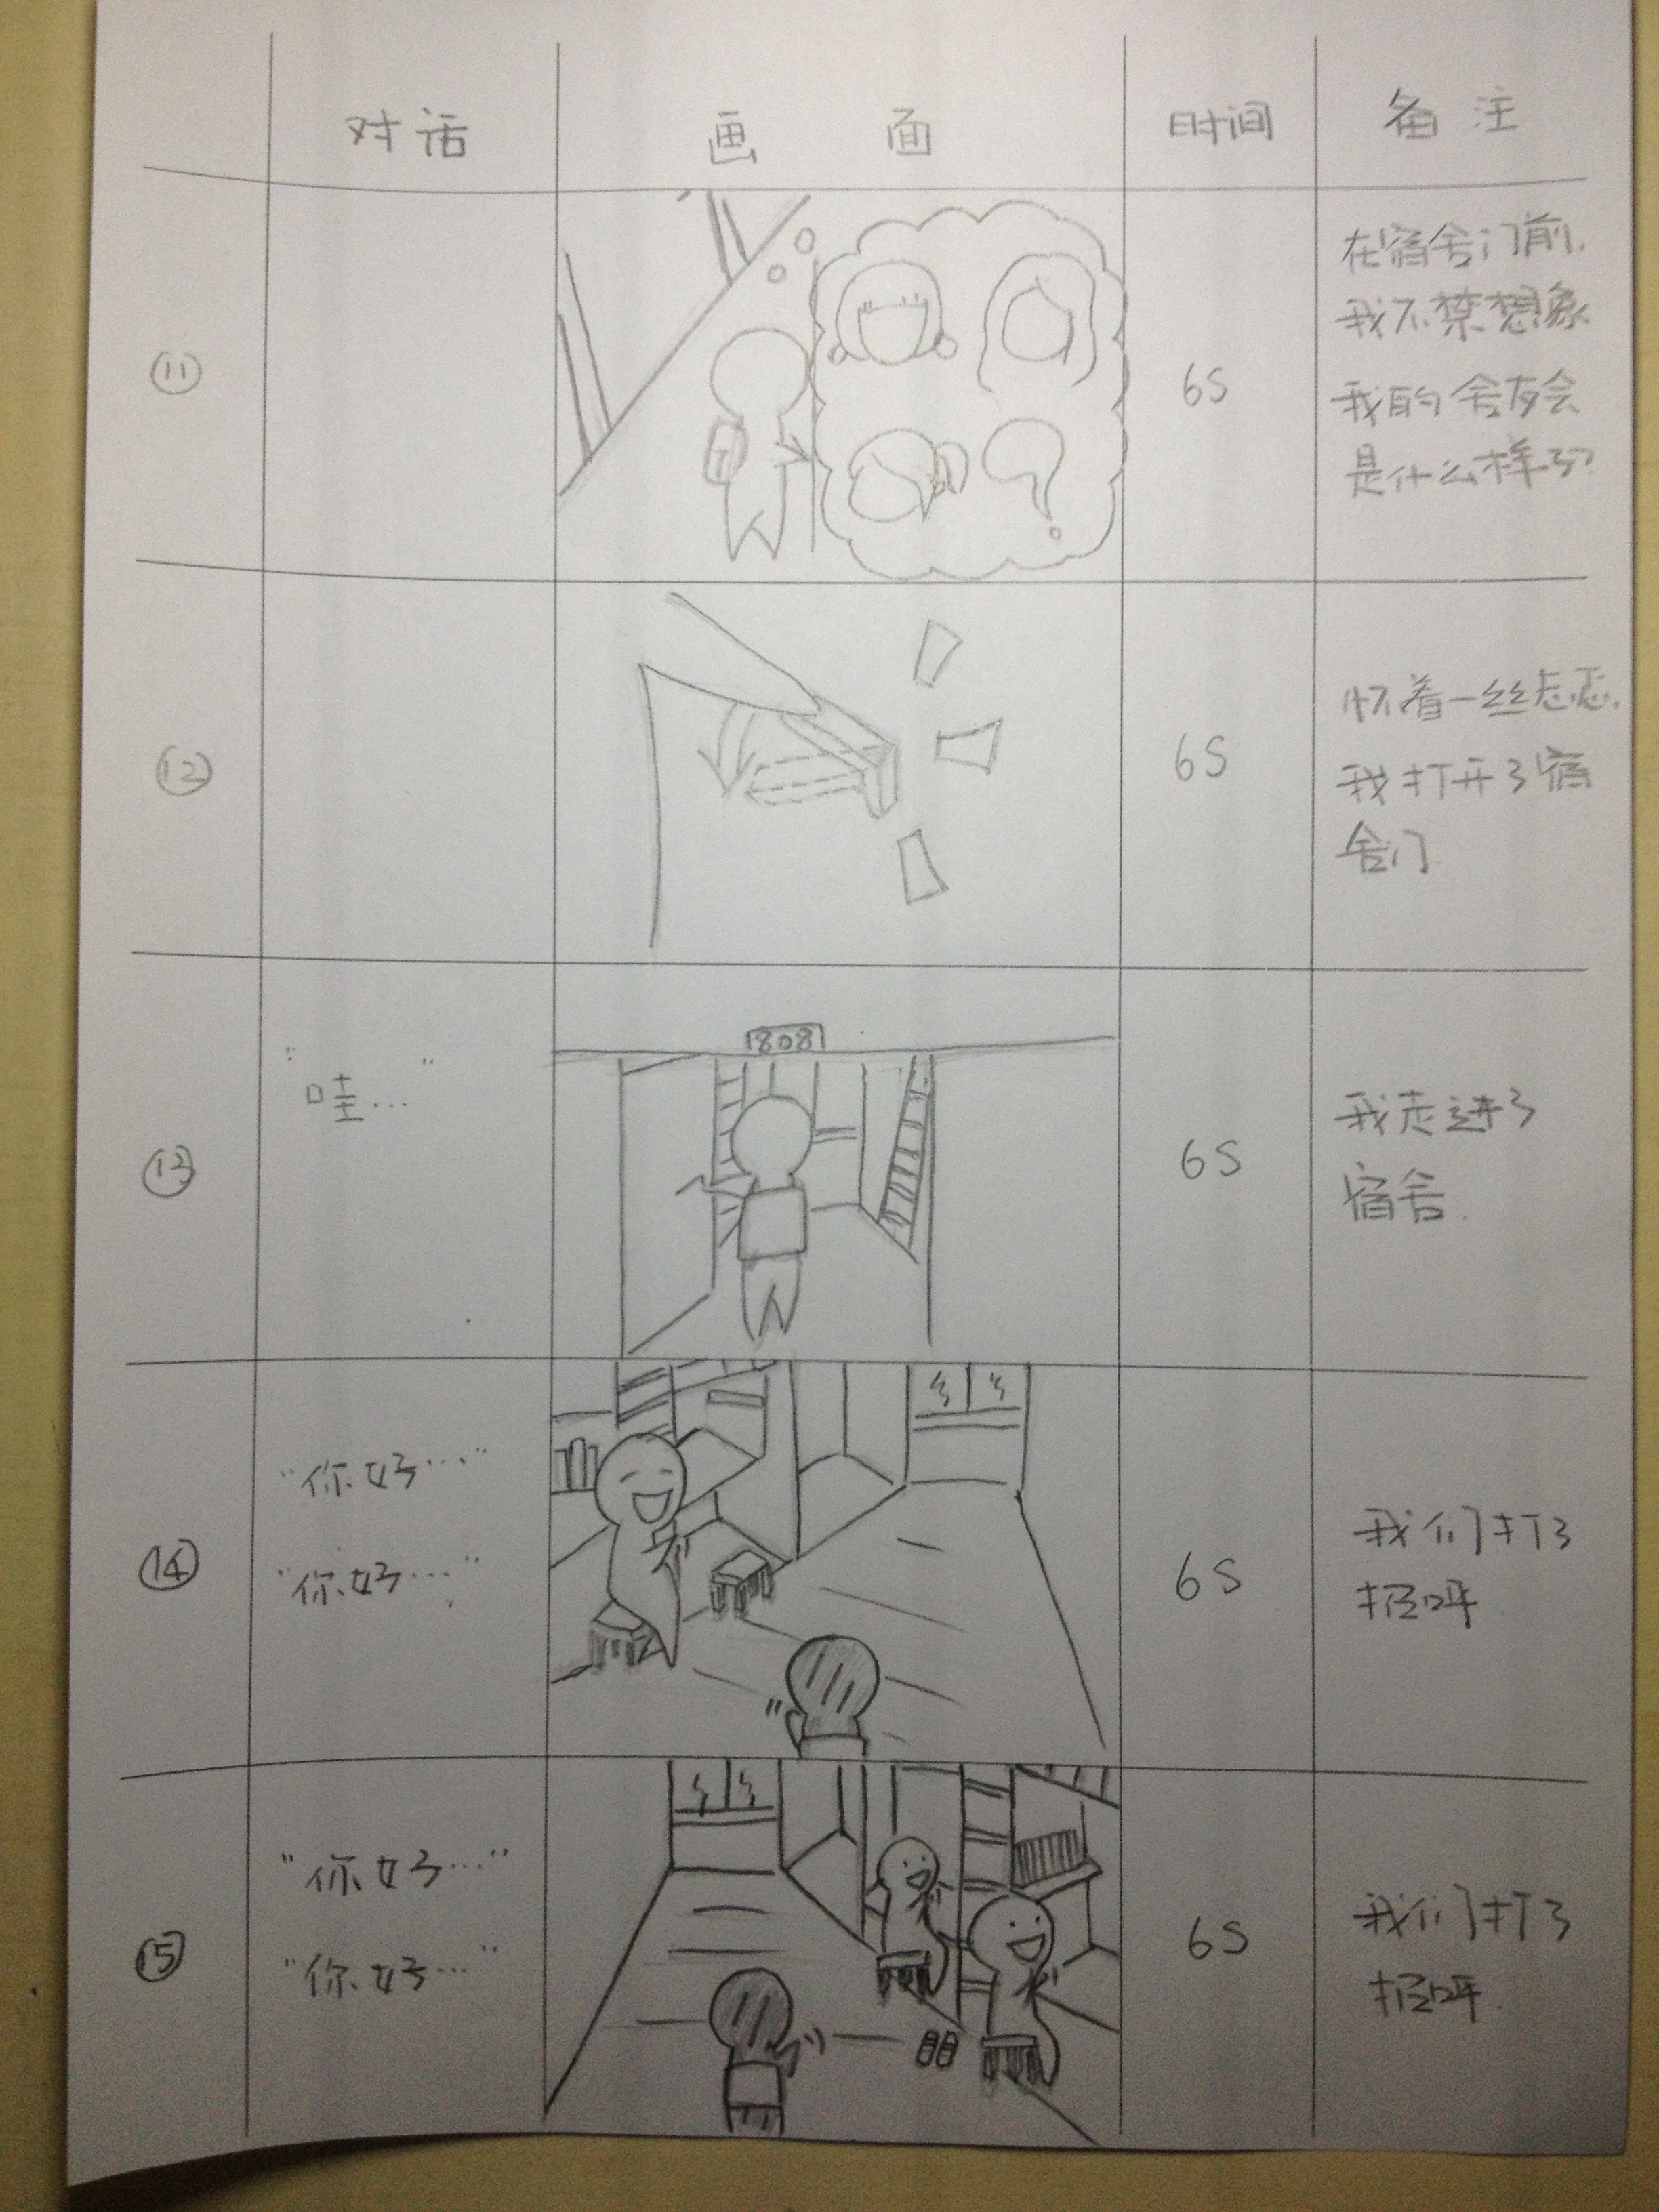 对话 画面 时间 备注
⑪ 6S 在宿舍门前,
我不禁想象
我的舍友会
是什么样子?
?
⑫ 6S 怀着一丝忐忑,
我打开了宿
舍门
808
⑬ "哇…" 6S 我走进了
宿舍.
⑭ "你好…" 6S 我们打了
"你好…" 招呼
⑮ "你好…" 6S 我们打了
"你好…" 招呼.